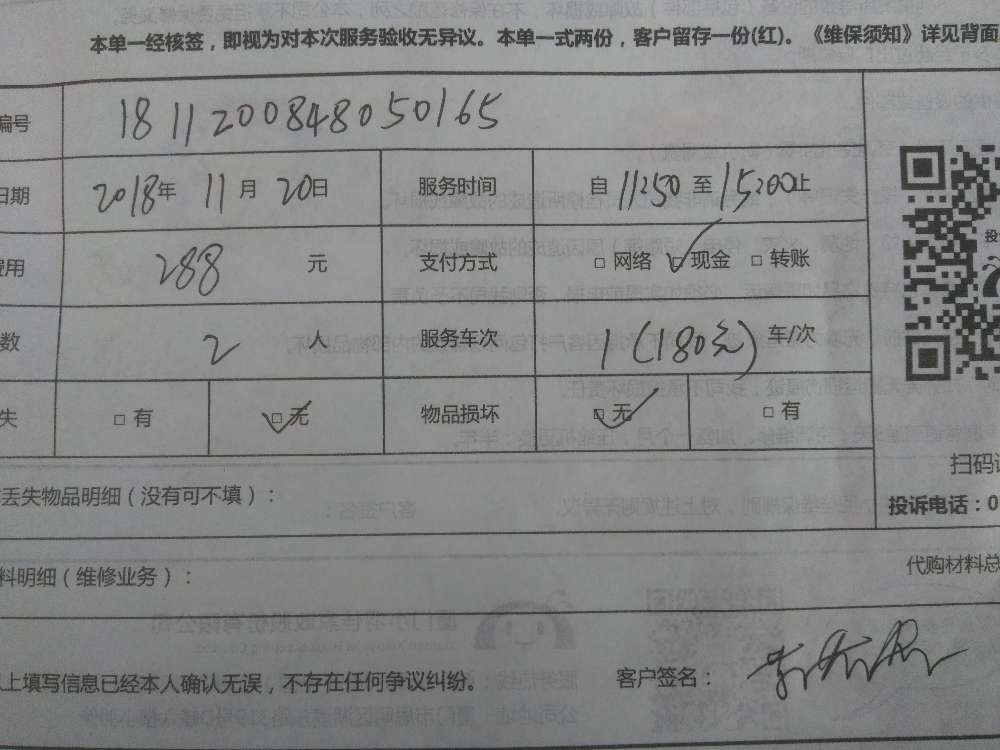 本单一经核签，即视为对本次服务验收无异议。本单一式两份，客户留存一份(红)。《维保须知》详见背面
编号 181120084805 0165
日期 2018年 11月 20日 服务时间 自 11:50 至 15:20 止
费用 288 元 支付方式 □ 网络 □ 现金 □ 转账
数 2 人 服务车次 1(180元) 车/次
失 □ 有 □ 无 物品损坏 □ 无 □ 有
扫码
丢失物品明细（没有可不填）：
投诉电话：0
料明细（维修业务）：
代购材料总
上填写信息已经本人确认无误，不存在任何争议纠纷。
客户签名：